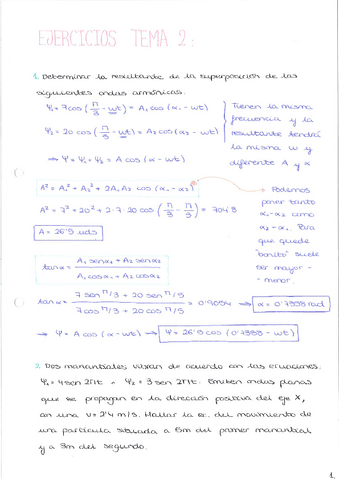 EJERCICIOS TEMA 2:
1. Determinar la resultante de la superposición de las
siguientes ondas armónicas.
Ψ₁ = 7 cos (π/3 - wt) = A₁ cos (α₁ - wt)
Ψ₂ = 20 cos (π/5 - wt) = A₂ cos (α₂ - wt)
⇒ Ψ = Ψ₁ + Ψ₂ = A cos (α - wt)
Tienen la misma
frecuencia y la
resultante tendrá
la misma w y
diferente A y α
A² = A₁² + A₂² + 2A₁A₂ cos (α₁ - α₂)
A² = 7² + 20² + 2·7·20 cos
A = 26'5 uds
Podemos
poner tanto
α₁-α₂ como
α₂-α₁. Para
que quede
"bonito" suele
ser mayor -
- menor.
tan α = A₁ sen α₁ + A₂ sen α₂ / A₁ cos α₁ + A₂ cos α₂
tan α = 7 sen π/3 + 20 sen π/5 / 7 cos π/3 + 20 cos π/5
⇒ Ψ = A cos (α - wt) ⇒
2. Dos manantiales vibran de acuerdo con las ecuaciones.
Ψ₁ = 4 sen 2πt = Ψ₂ = 3 sen 2πt. Emiten ondas planas
que se propagan en la dirección positiva del eje X,
con una v = 2'4 m/s. Hallar la ec. del movimiento de
una partícula situada a 6m del primer manantial
y a 9m del segundo.
1.